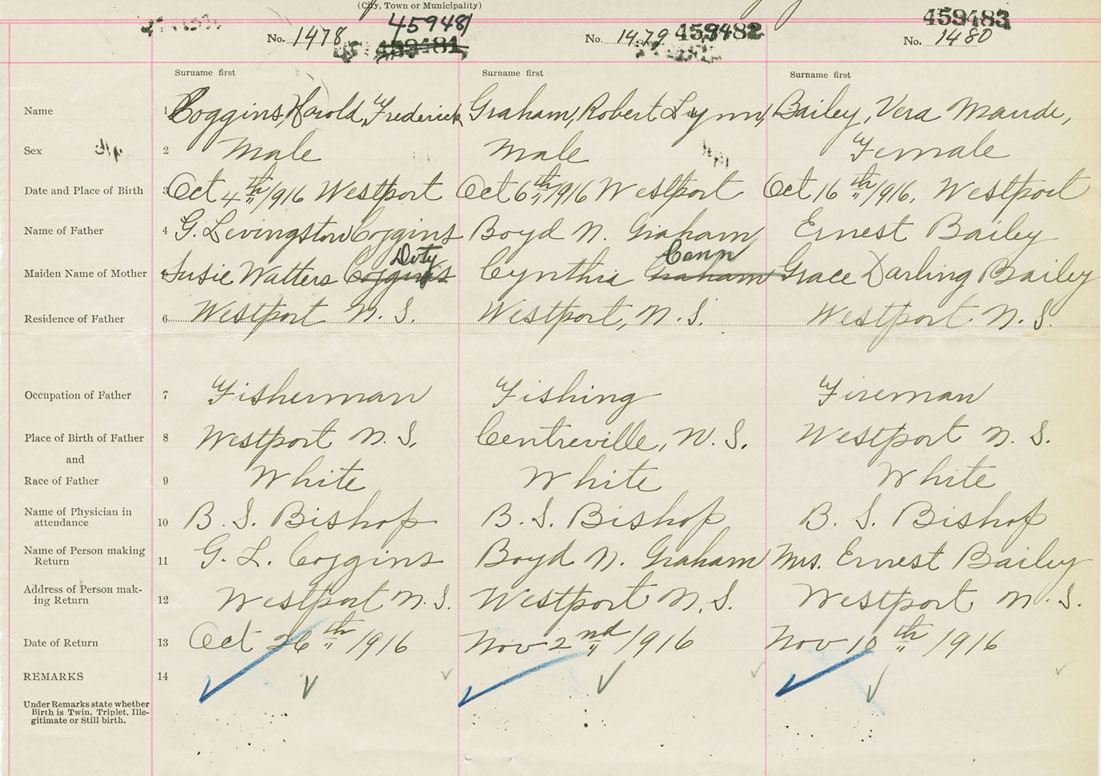 (City, Town or Municipality)
459481 459483
No. 1478 459481 No. 1479 459482 No. 1480
Surname first Surname first Surname first
Name 1 Coggins, Harold, Frederick Graham, Robert Lynn, Bailey, Vera Maude,
Sex 2 Male Male Female
Date and Place of Birth 3 Oct 4th 1916 Westport Oct 6th 1916 Westport Oct 16th 1916, Westport
Name of Father 4 G. Livingston Coggins Boyd N. Graham Ernest Bailey
Doty Cann
Maiden Name of Mother Susie Watters Coggins Cynthia Graham Grace Darling Bailey
Residence of Father 6 Westport N.S. Westport, N.S. Westport N.S.
Occupation of Father 7 Fisherman Fishing Fireman
Place of Birth of Father 8 Westport N.S. Centreville, N.S. Westport N.S.
and
Race of Father 9 White White White
Name of Physician in
attendance 10 B. S. Bishop B. S. Bishop B. S. Bishop
Name of Person making
Return 11 G. L. Coggins Boyd N. Graham Mrs. Ernest Bailey
Address of Person mak-
ing Return 12 Westport N.S. Westport N.S. Westport N.S.
Date of Return 13 Oct 26th 1916 Nov 2nd 1916 Nov 10th 1916
REMARKS 14
Under Remarks state whether
Birth is Twin, Triplet, Ille-
gitimate or Still birth.